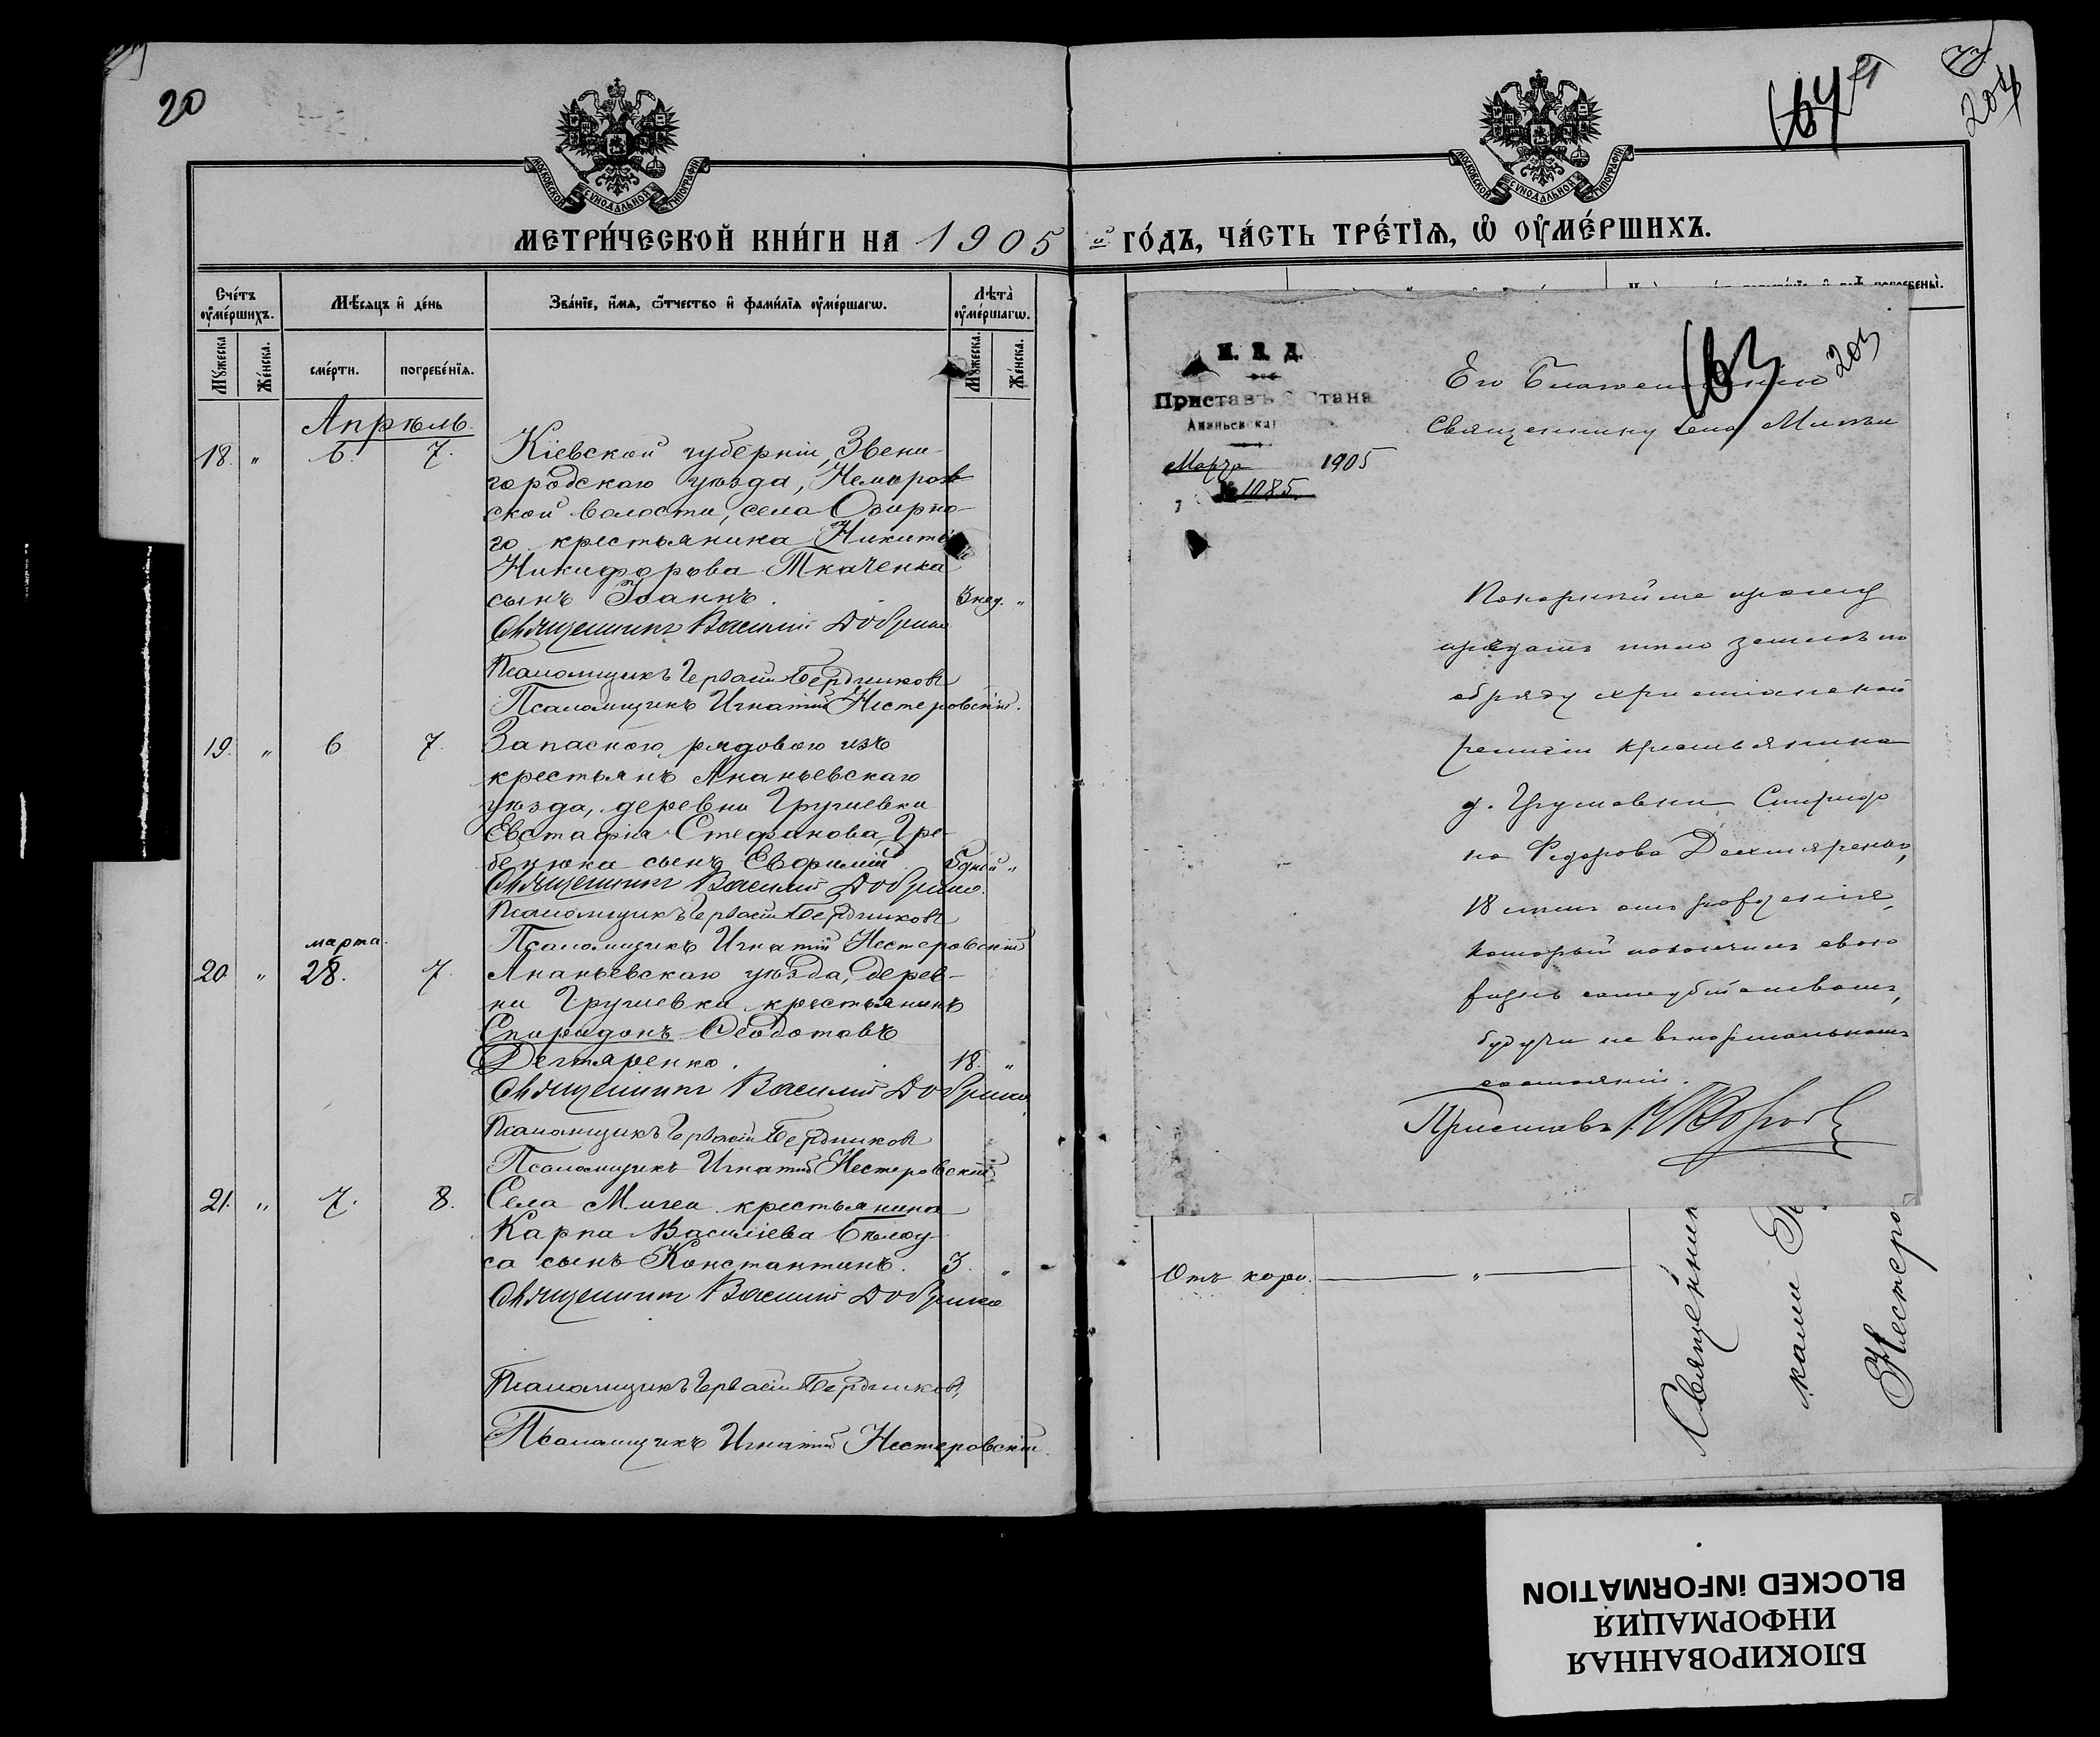 20
МОСКОВСКОЙ СѴНОДАЛЬНОЙ ТИПОГРАФІИ
МЕТРИ́ЧЕСКОЙ КНИ́ГИ НА 1905
Сче́тъ оу҆ме́ршихъ.
Мѣ́сяцъ и҆ де́нь
Зва́нїе, и҆́мя, ѻ҆́тчество и҆ фами́лїя оу҆ме́ршагѡ.
Лѣта̀ оу҆ме́ршагѡ.
Му́жеска
Же́нска.
сме́рти.
погребе́нїя.
Му́жеска.
Же́нска.
Апрѣль.
18. " 6. 7. Кіевской губерніи, Звени-
городскаго уѣзда, Неморов-
ской волости, села Озирно-
го крестьянина Никиты
Никифорова Ткаченка
сынъ Іоаннъ. 3 нед. "
Священникъ Василій Добрино
Псаломщикъ Гервасій Бердниковъ
Псаломщикъ Игнатій Нестеровскій.
19. " 6 7. Запасного рядового изъ
крестьянъ Ананьевскаго
уѣзда, деревни Грушевки
Евстафія Стефанова Гре-
бенюка сынъ Евфимій 5 дней "
Священникъ Василій Добрино.
Псаломщикъ Гервасій Бердниковъ
Псаломщикъ Игнатій Нестеровскій
марта.
20. " 28. 7. Ананьевскаго уѣзда, дерев-
ни Грушевки крестьянинъ
Спиридонъ Ѳеодотовъ
Дегтяренко. 18. "
Священникъ Василій Добрино
Псаломщикъ Гервасій Бердниковъ
Псаломщикъ Игнатій Нестеровскій
21. " 7. 8. Села Мигеи крестьянина
Карпа Василіева Бѣлоу-
са сынъ Константинъ. 3. "
Священникъ Василій Добрино
Псаломщикъ Гервасій Бердниковъ
Псаломщикъ Игнатій Нестеровскій.
204
МОСКОВСКОЙ СѴНОДАЛЬНОЙ ТИПОГРАФІИ
й ГО́ДЪ, ЧА́СТЬ ТРЕ́ТЇѦ, Ѡ҆ ОУ҆МЕ́РШИХЪ.
М. В. Д.
Приставъ 2 Стана
Ананьевскаг
Марта 1905
№ 1085.
63
203
Его Благословенію
Священнику села Мигеи
Покорнѣйше прошу
предать тѣло землѣ по
обряду христіанской
религіи крестьянина
д. Грушевки Спиридо
на Федорова Дехтяренко,
18 лѣтъ отъ рожденія,
который покончилъ свою
жизнь самоубійствомъ,
будучи не въ нормальномъ
состояніи.
Приставъ
Отъ кори. "
Священник
ками
Нестеро
БЛОКИРОВАННАЯ
ИНФОРМАЦИЯ
BLOCKED INFORMATION